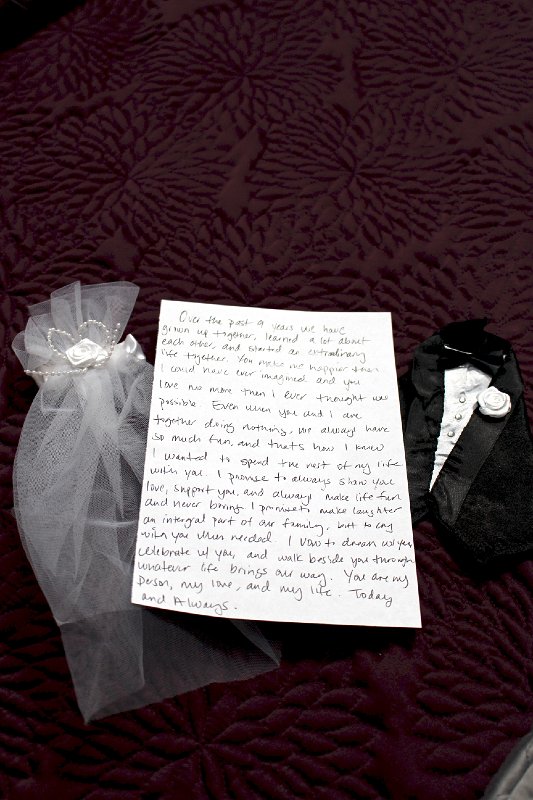 Over the past 9 years we have
grown up together, learned a lot about
each other, and started an extraordinary
life together. You make me happier then
I could have ever imagined and you
love me more then I ever thought was
possible. Even when you and I are
together doing nothing, we always have
so much fun, and that's how I knew
I wanted to spend the rest of my life
with you. I promise to always show you
love, support you, and always make life fun
and never boring. I promise to make laughter
an intergral part of our family, but to cry
with you when needed. I vow to dream w/ you,
celebrate w/ you, and walk beside you through
whatever life brings our way. You are my
person, my love, and my life. Today
and Always.